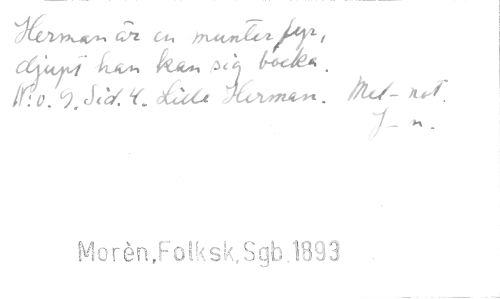 Herman är en munter fyr,
djupt han kan sig bocka.
N:o. 9. Sid. 4. Lille Herman. Mel-not.
J-n.
Morèn,Folksk,Sgb.1893